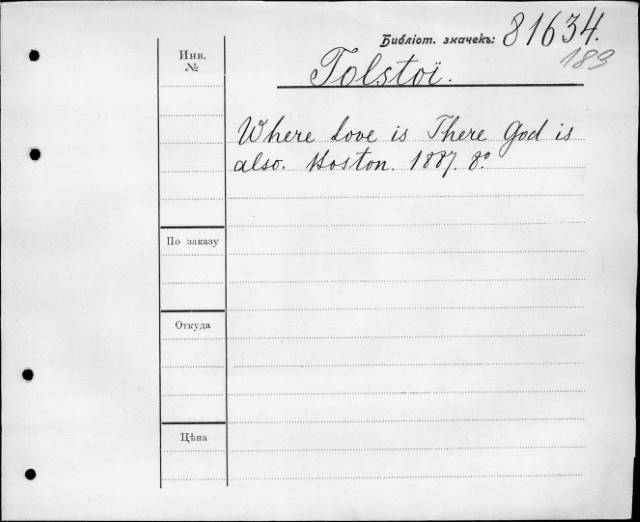 Библіот. значекъ: 81634.
189
Инв.
№
Tolstoï.
Where Love is There God is
also. Boston. 1887. 8.º
По заказу
Откуда
Цѣна